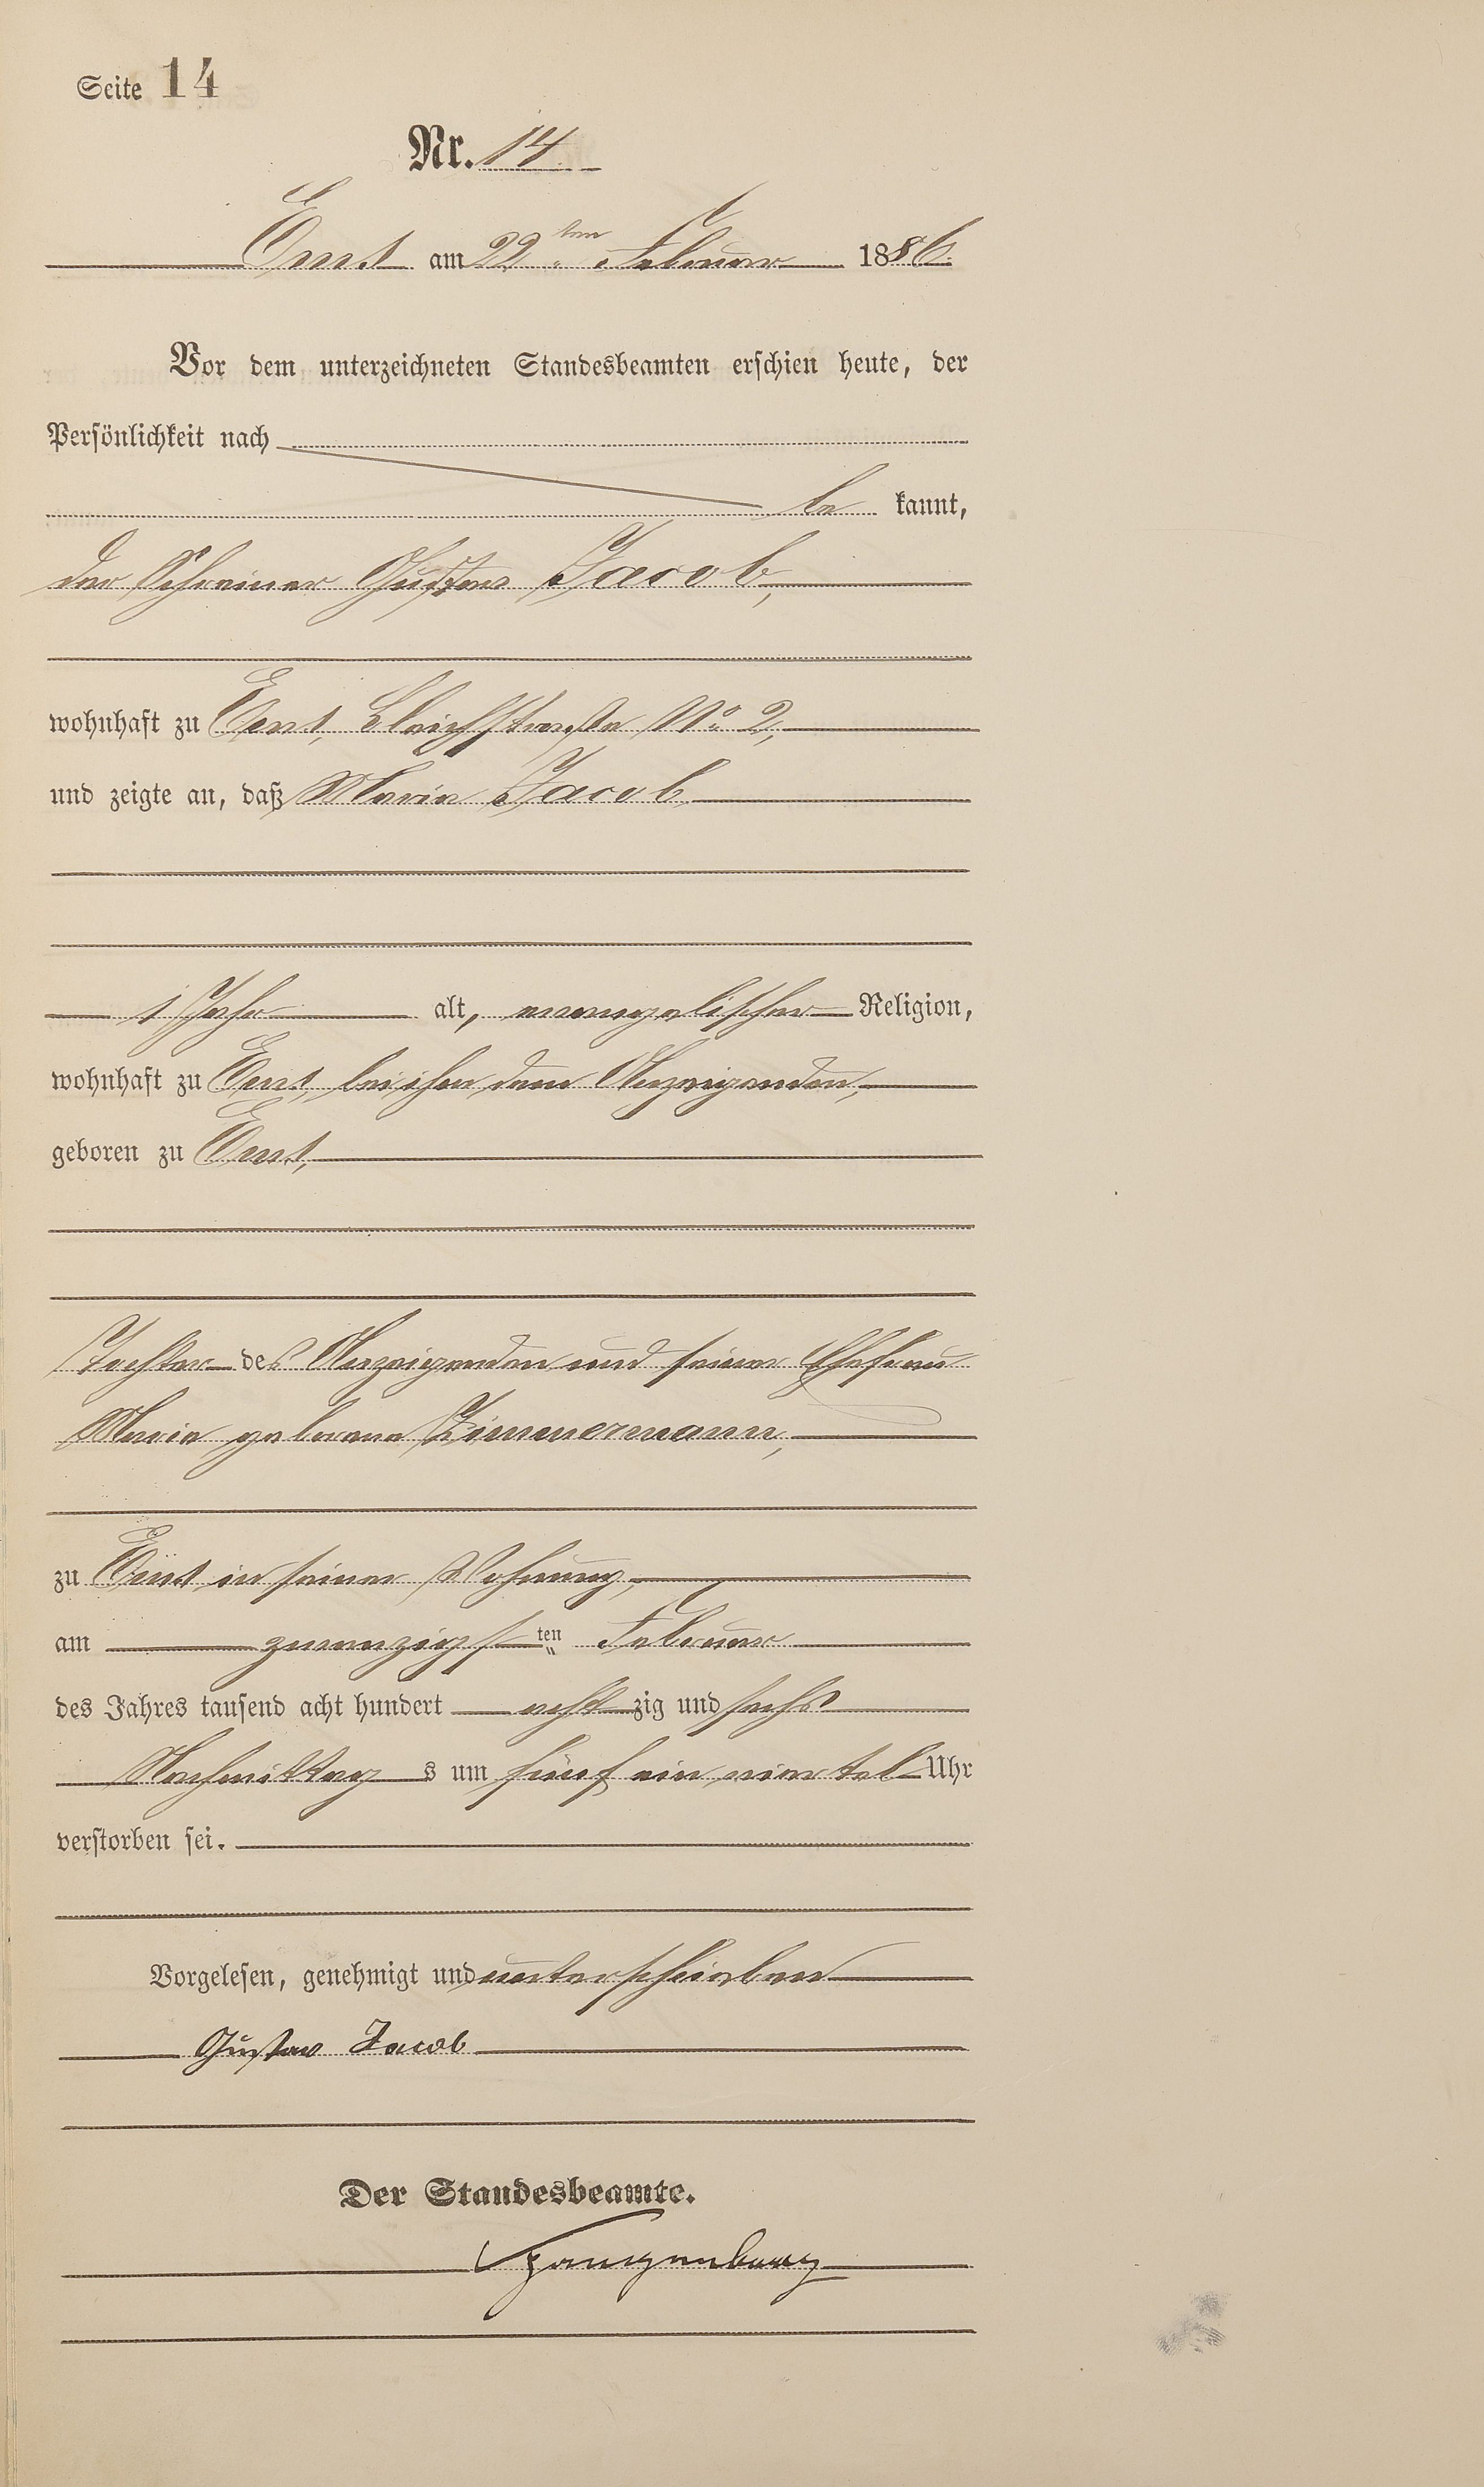 Seite 14
Nr. 14.
Ems am 22ten Februar 1886.
Vor dem unterzeichneten Standesbeamten erschien heute, der
Persönlichkeit nach
be kannt,
der Schreiner Gustav Jacob,
wohnhaft zu Ems, Bleichstraße No 2,
und zeigte an, daß Maria Jacob
1 Jahr alt, evangelischer Religion,
wohnhaft zu Ems, bei ihm dem Anzeigenden,
geboren zu Ems,
Tochter des Anzeigenden und seiner Ehefrau
Maria geborene Zimmermann,
zu Ems in seiner Wohnung,
am zwanzigsten Februar
des Jahres tausend acht hundert acht zig und sechs
Nachmittag s um fünf ein viertel Uhr
verstorben sei.
Vorgelesen, genehmigt und unterschrieben
Gustav Jacob
Der Standesbeamte.